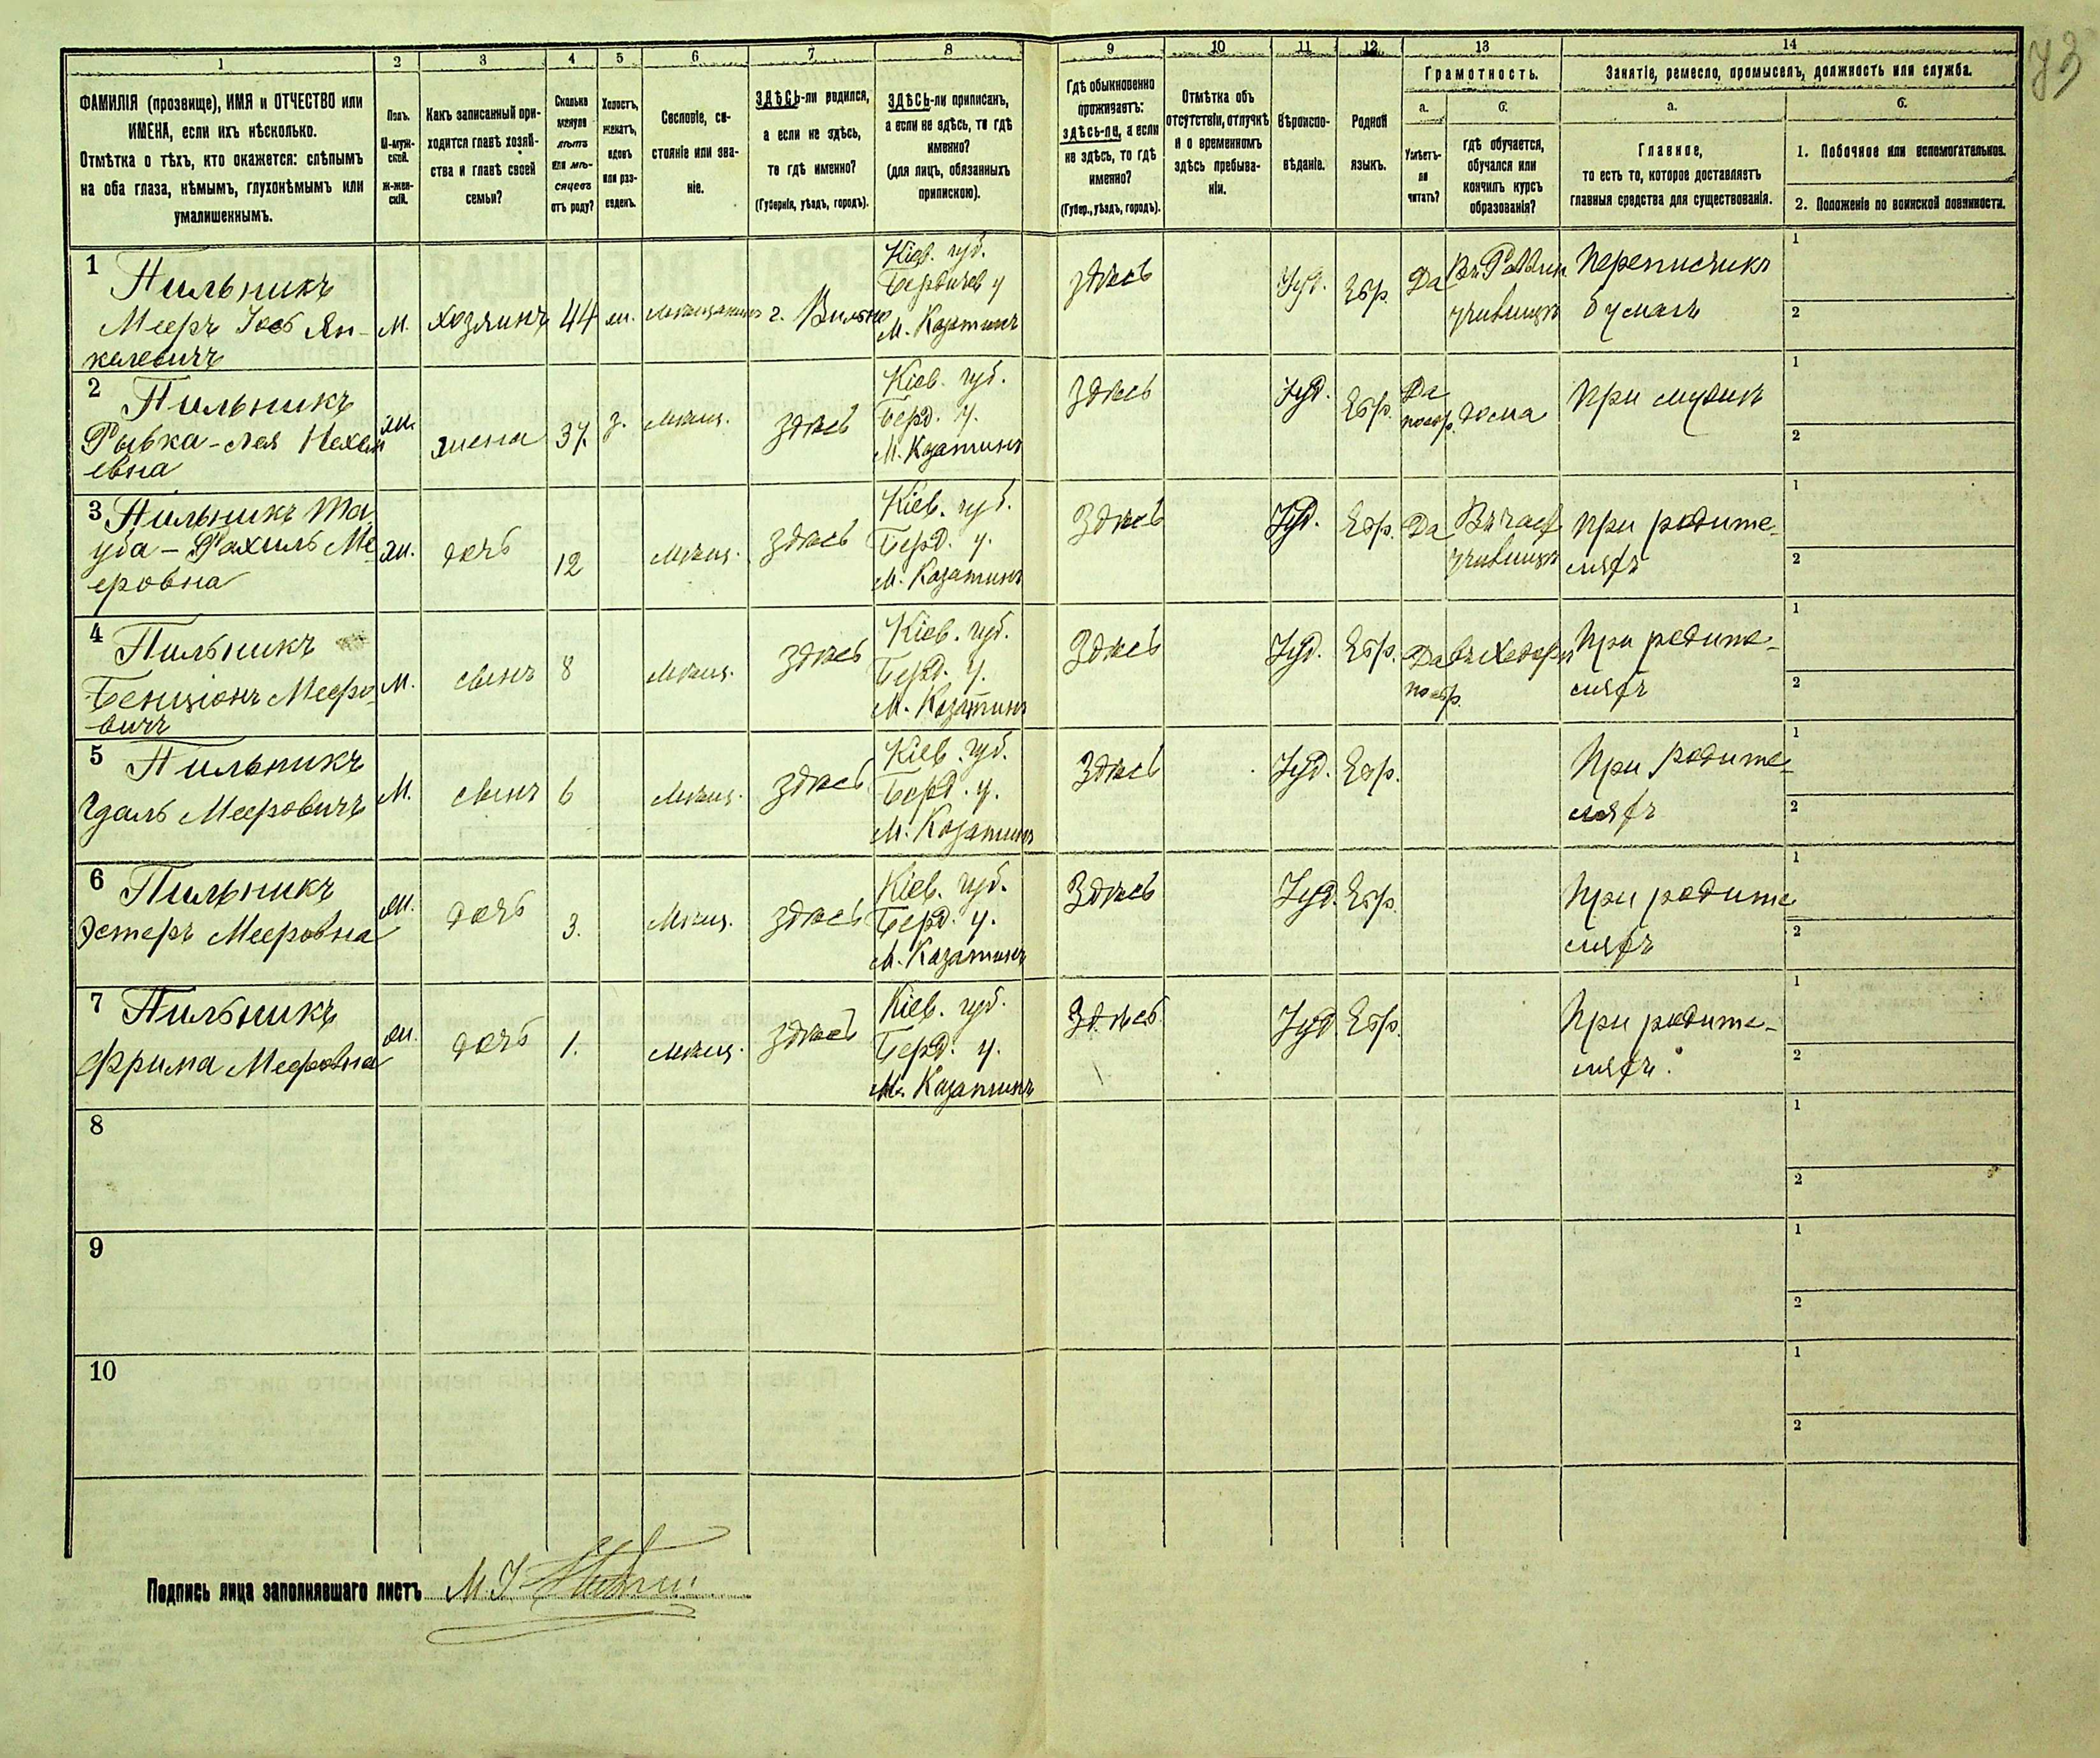 73
1 2 3 4 5 6 7 8 9 10 11 12 13 14
ФАМИЛІЯ (прозвище), ИМЯ и ОТЧЕСТВО или
ИМЕНА, если ихъ нѣсколько.
Отмѣтка о тѣхъ, кто окажется: слѣпымъ
на оба глаза, нѣмымъ, глухонѣмымъ или
умалишеннымъ.
Полъ.
М-муж-
ской.
Ж-жен-
скій.
Какъ записанный при-
ходится главѣ хозяй-
ства и главѣ своей
семьи?
Сколько
минуло
лѣтъ
или мѣ-
сяцевъ
отъ роду?
Холостъ,
женатъ,
вдовъ
или раз-
веденъ.
Сословіе, со-
стояніе или зва-
ніе.
ЗДѢСЬ-ли родился,
а если не здѣсь,
то гдѣ именно?
(Губернія, уѣздъ, городъ).
ЗДѢСЬ-ли приписанъ,
а если не здѣсь, то гдѣ
именно?
(для лицъ, обязанныхъ
припискою).
Гдѣ обыкновенно
проживаетъ:
здѣсь-ли, а если
не здѣсь, то гдѣ
именно?
(Губер., уѣздъ, городъ).
Отмѣтка объ
отсутствіи, отлучкѣ
и о временномъ
здѣсь пребыва-
ніи.
Вѣроиспо-
вѣданіе.
Родной
языкъ.
Грамотность.
а.
Умѣетъ-
ли
читать?
б.
гдѣ обучается,
обучался или
кончилъ курсъ
образованія?
Занятіе, ремесло, промыселъ, должность или служба.
а.
Главное,
то есть то, которое доставляетъ
главныя средства для существованія.
б.
1. Побочное или вспомогательное.
2. Положеніе по воинской повинности.
1
Пильникъ
Мееръ Іось Ян-
келевичъ
М.
хозяинъ
44
ж.
мѣщанинъ
г. Вильно
Кіев. губ.
Бердичев у
М. Казатинъ
здѣсь
Іуд.
Евр.
Да
Въ Раввин
училищѣ
Переписчикъ
бумагъ
1
2
2
Пильникъ
Рывка-Лея Нахам
евна
ж.
жена
37.
з.
мѣщ.
здѣсь
Кіев. губ.
Берд. у.
М. Казатинъ
здѣсь
Іуд.
Евр.
Да
по евр.
дома
При мужѣ
1
2
3 Пильникъ Та
уба - Рахиль Ме
еровна
ж.
дочь
12
мѣщ.
здѣсь
Кіев. губ.
Берд. у.
М. Казатинъ
Здѣсь
Іуд.
Евр.
Да
Въ част
училищѣ
При родите-
ляхъ
1
2
4
Пильникъ
Бенціонъ Мееро-
вичъ
М.
сынъ
8
мѣщ.
здѣсь
Кіев. губ.
Берд. у.
М. Казатинъ
Здѣсь
Іуд.
Евр.
Да
по евр.
въ Хедерѣ
При родите-
ляхъ
1
2
5
Пильникъ
Гдаль Мееровичъ
М.
сынъ
6
мѣщ.
здѣсь
Кіев. губ.
Берд. у.
М. Казатинъ
Здѣсь
Іуд.
Евр.
При родите-
ляхъ
1
2
6
Пильникъ
Эстеръ Мееровна
ж.
дочь
3.
мѣщ.
здѣсь
Кіев. губ.
Берд. у.
М. Казатинъ
Здѣсь
Іуд.
Евр.
При родите
ляхъ
1
2
7
Пильникъ
Фрима Мееровна
ж.
дочь
1.
мѣщ.
здѣсь
Кіев. губ.
Берд. у.
М. Казатинъ
Здѣсь
Іуд
Евр.
При родите-
ляхъ.
1
2
8
1
2
9
1
2
10
1
2
Подпись лица заполнявшаго листъ М. І.